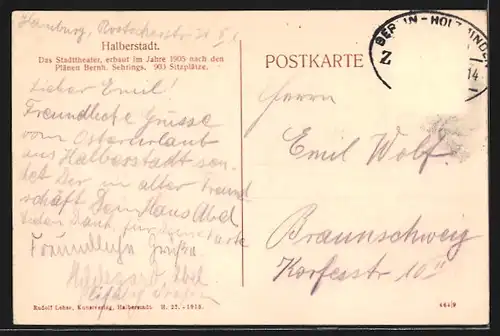 Hamburg,
Halberstadt.
Das Stadttheater, erbaut im Jahre 1905 nach den
Plänen Bernh. Sehrings. 903 Sitzplätze.
Lieber Emil!
Freundliche Grüsse
vom Osterurlaub
aus Halberstadt sen-
det Dir in alter Freund
schaft Dein Hans Abel
Dank, für
Freundliche Grüße
Hildegard Abel
Rudolf Leher, Kunstverlag, Halberstadt. H. 25. - 1910.
POSTKARTE
BERLIN - HOLZMINDEN
Z
14
Herrn
Emil Wolf.
Braunschweig
464/9